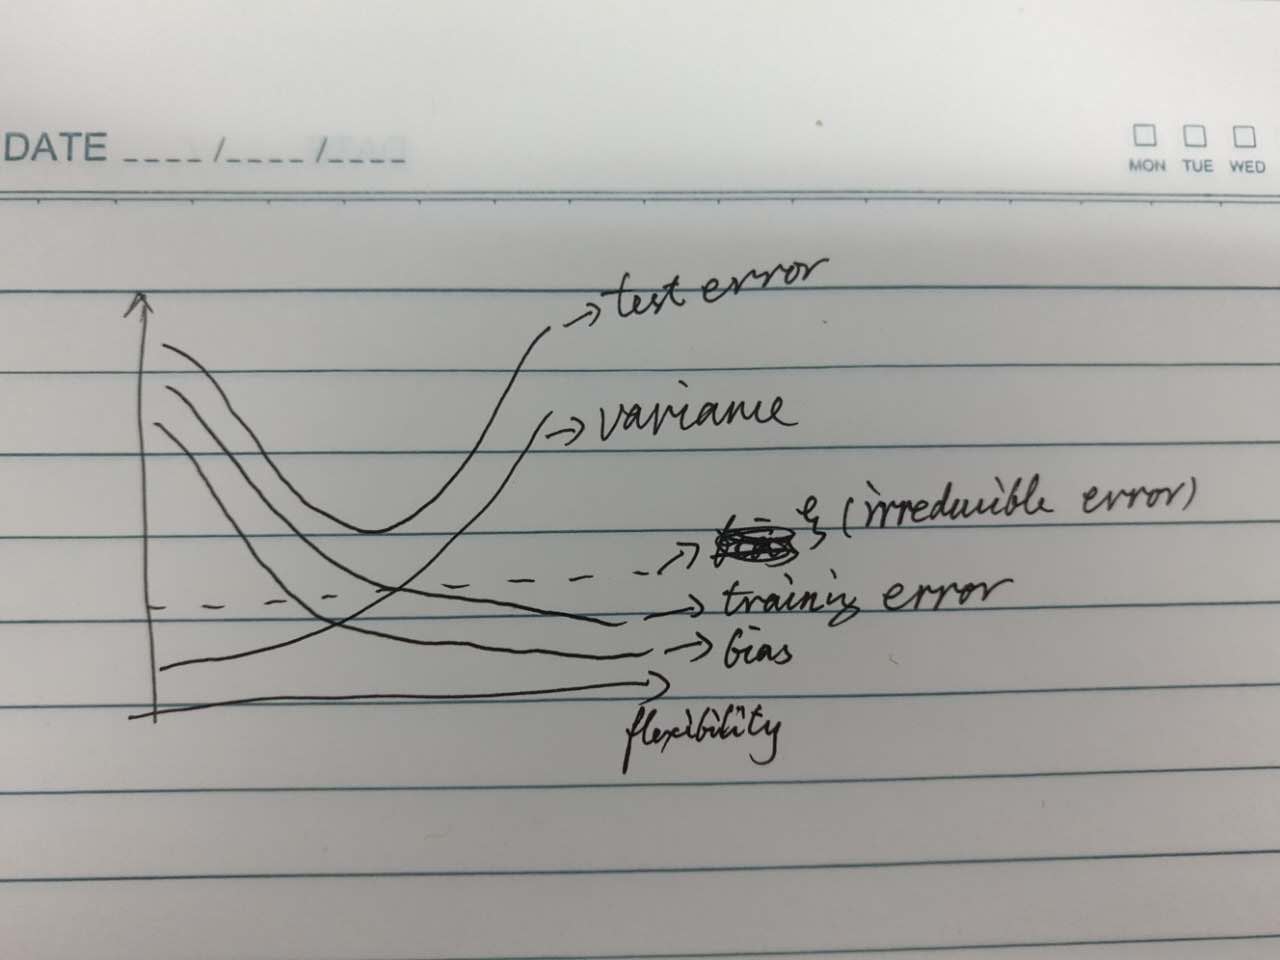 DATE ____/____/____
MON TUE WED
test error
variance
(irreducible error)
training error
bias
flexibility